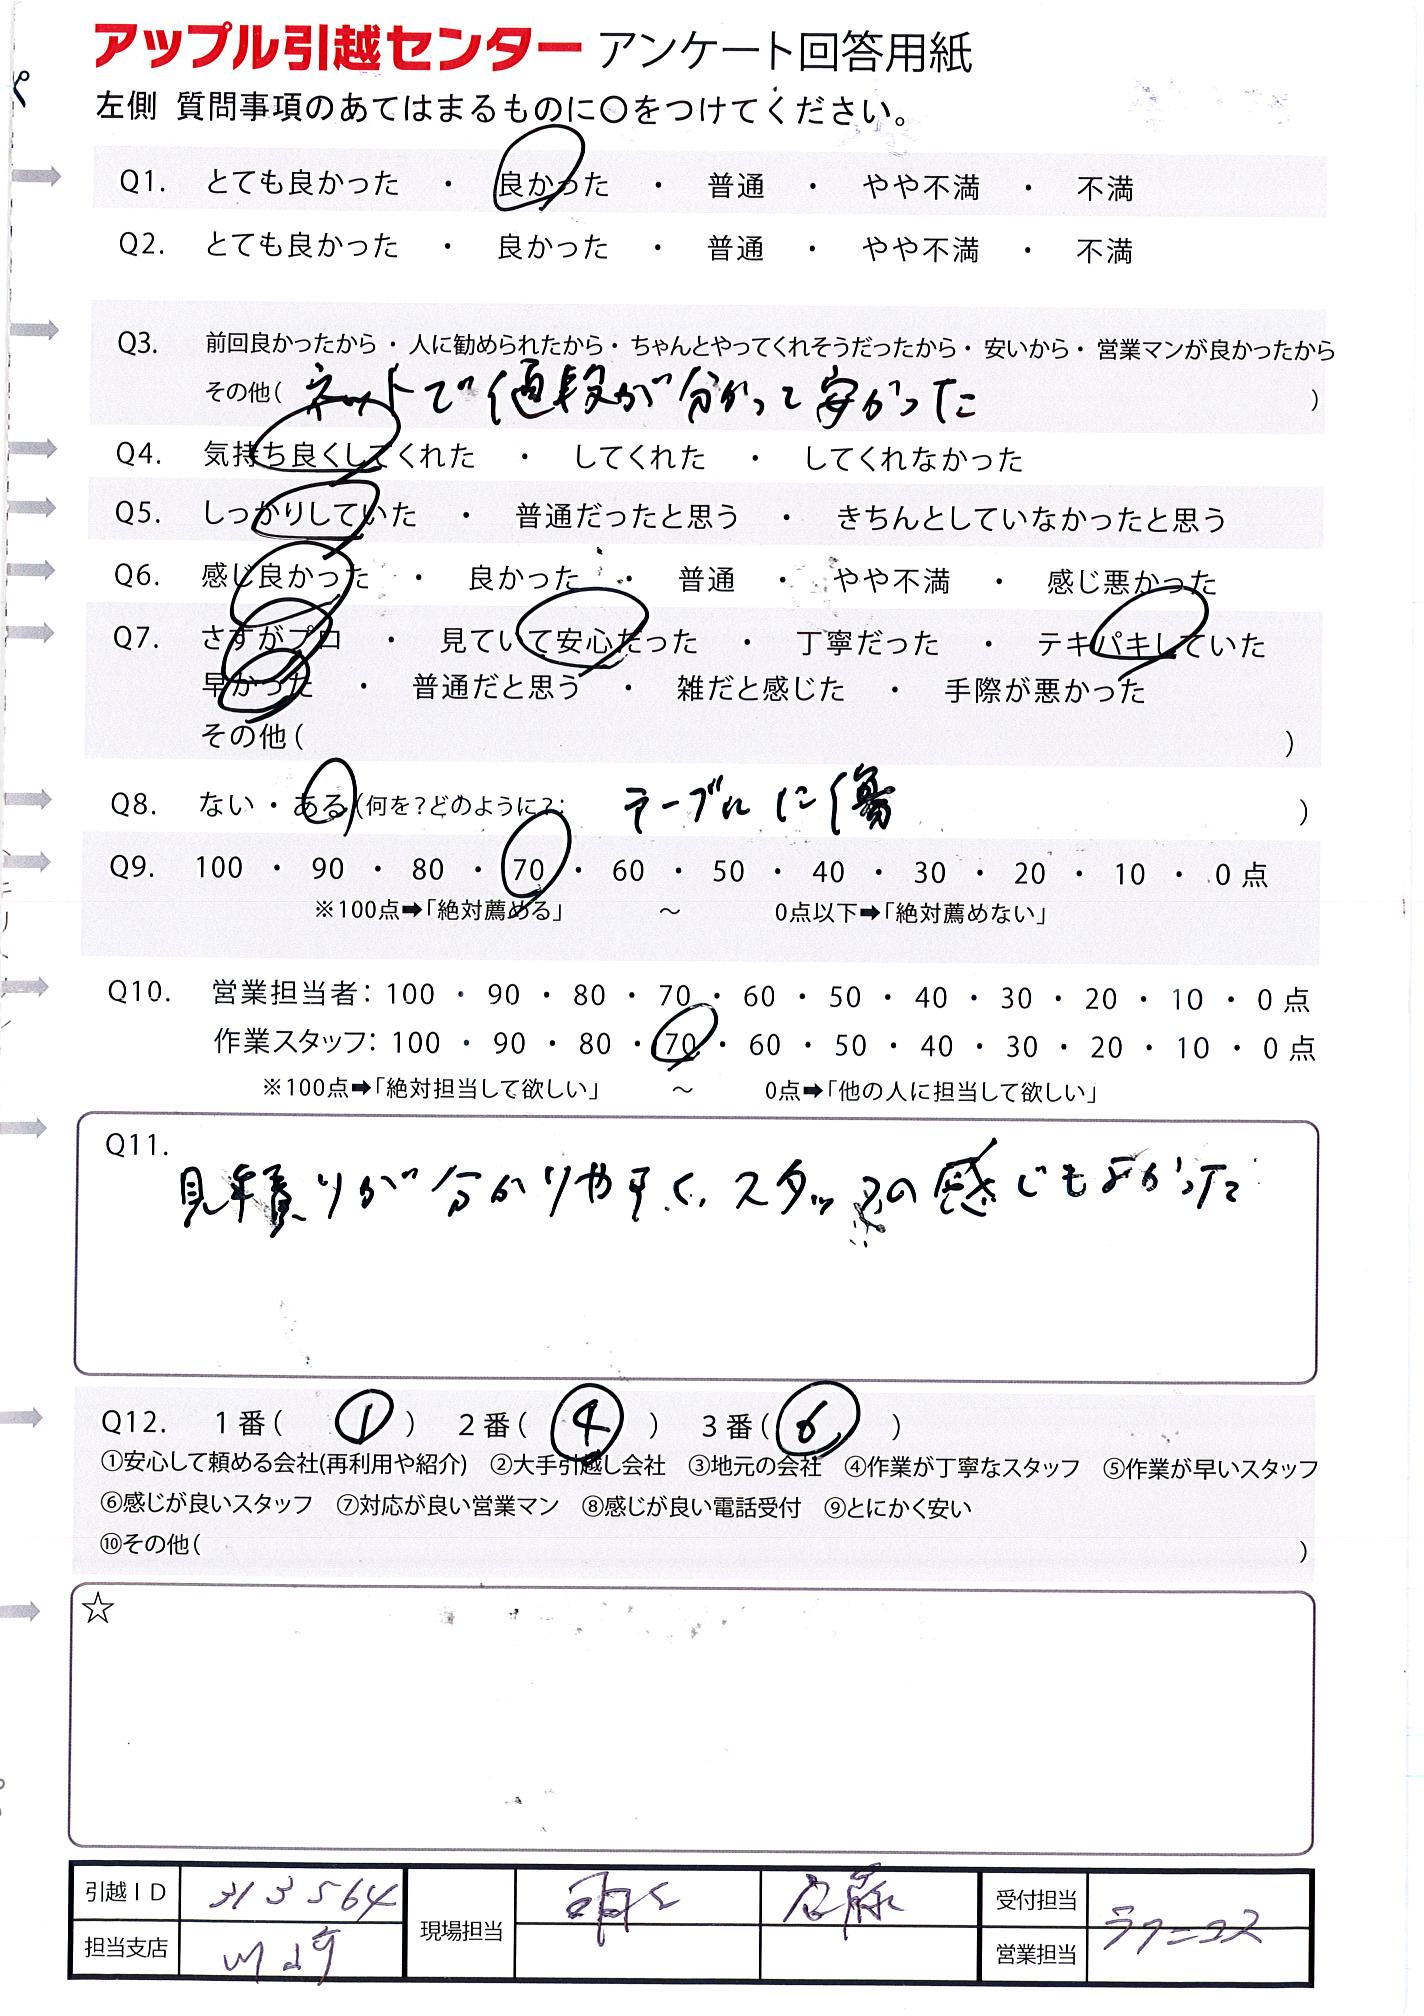 アップル引越センター アンケート回答用紙
左側 質問事項のあてはまるものに〇をつけてください。
Q1. とても良かった ・ 良かった ・ 普通 ・ やや不満 ・ 不満
Q2. とても良かった ・ 良かった ・ 普通 ・ やや不満 ・ 不満
Q3. 前回良かったから・人に勧められたから・ちゃんとやってくれそうだったから・安いから・営業マンが良かったから
その他( ネットで値段が分かって安かった )
Q4. 気持ち良くしてくれた ・ してくれた ・ してくれなかった
Q5. しっかりしていた ・ 普通だったと思う ・ きちんとしていなかったと思う
Q6. 感じ良かった ・ 良かった ・ 普通 ・ やや不満 ・ 感じ悪かった
Q7. さすがプロ ・ 見ていて安心だった ・ 丁寧だった ・ テキパキしていた
早かった ・ 普通だと思う ・ 雑だと感じた ・ 手際が悪かった
その他( )
Q8. ない・ある(何を?どのように?: テーブルに傷 )
Q9. 100 ・ 90 ・ 80 ・ 70 ・ 60 ・ 50 ・ 40 ・ 30 ・ 20 ・ 10 ・ 0点
※100点➡「絶対薦める」 ～ 0点以下➡「絶対薦めない」
Q10. 営業担当者: 100 ・ 90 ・ 80 ・ 70 ・ 60 ・ 50 ・ 40 ・ 30 ・ 20 ・ 10 ・ 0点
作業スタッフ: 100 ・ 90 ・ 80 ・ 70 ・ 60 ・ 50 ・ 40 ・ 30 ・ 20 ・ 10 ・ 0点
※100点➡「絶対担当して欲しい」 ～ 0点➡「他の人に担当して欲しい」
Q11.
見積りが分かりやすく、スタッフの感じもよかった
Q12. 1番( ① ) 2番( ④ ) 3番( ⑥ )
①安心して頼める会社(再利用や紹介) ②大手引越し会社 ③地元の会社 ④作業が丁寧なスタッフ ⑤作業が早いスタッフ
⑥感じが良いスタッフ ⑦対応が良い営業マン ⑧感じが良い電話受付 ⑨とにかく安い
⑩その他( )
☆
引越ID 313564 現場担当 受付担当
担当支店 川崎 営業担当 ラクニコス